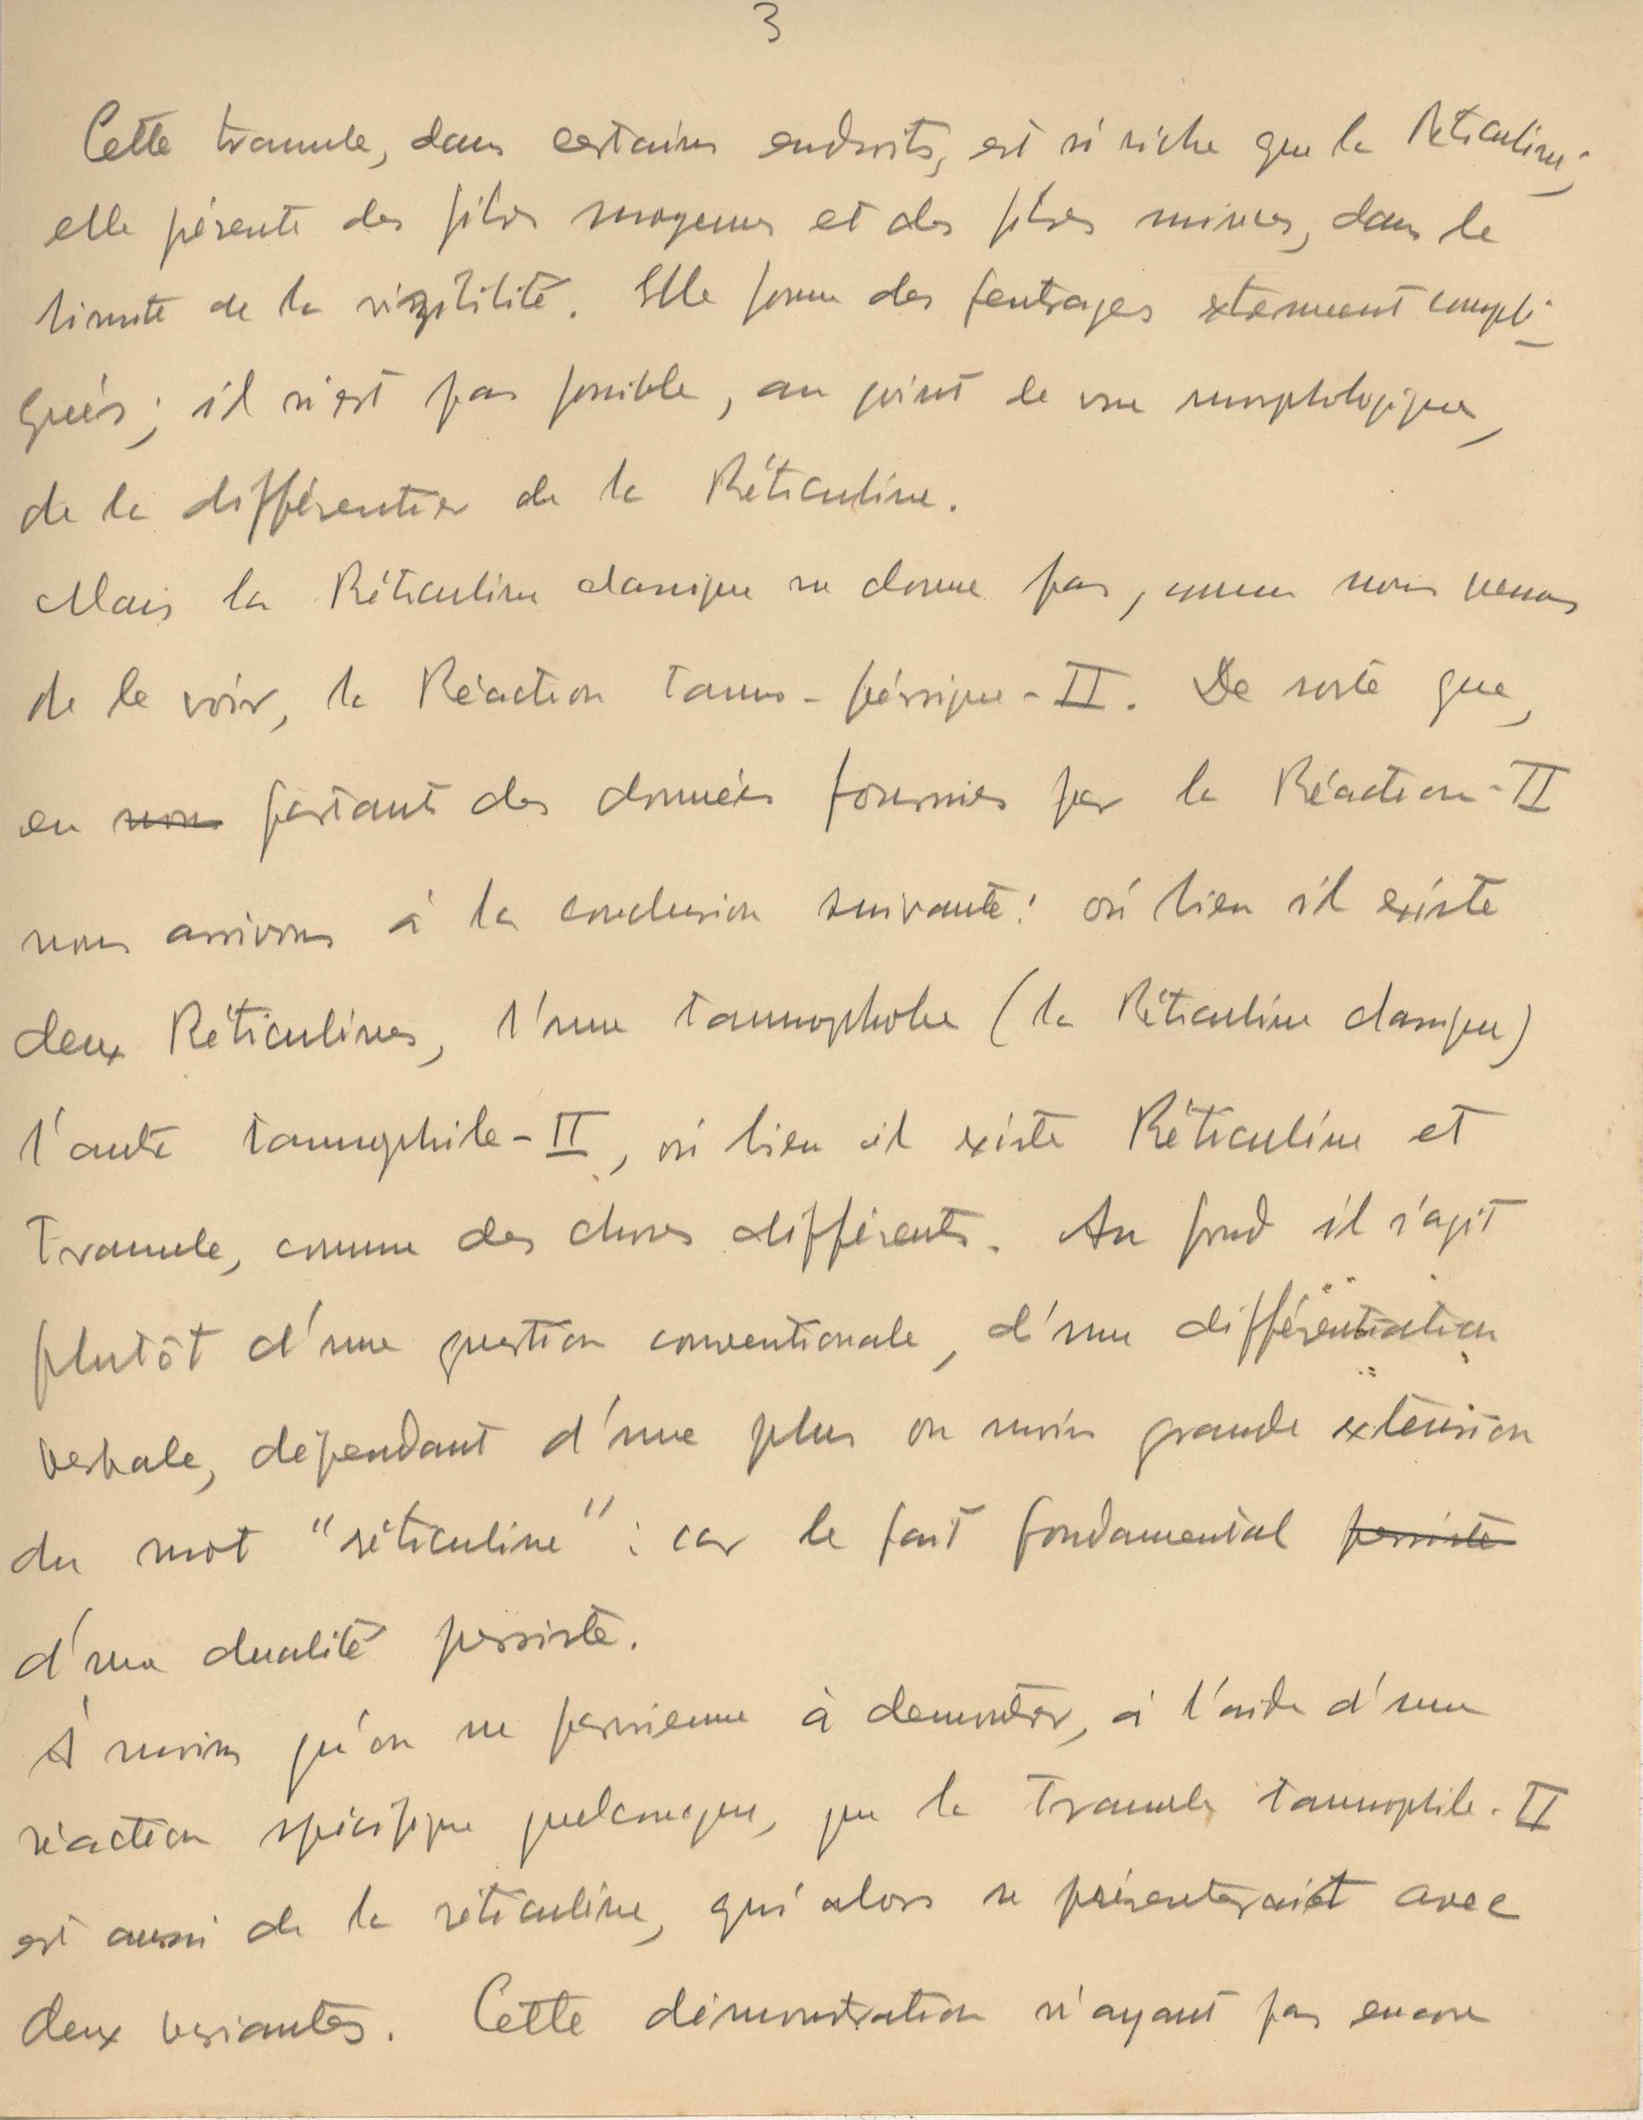 3
Cette tramule, dans certains endroits, est si riche que la Réticuline;
elle présente des fibres moyennes et des fibres minces, dans le
limite de la visibilité. Elle forme des feutrages extremement compli-
qués; il n'est pas possible, au point de vue morphologique,
de la différentier de la Réticuline.
Mais la Réticuline classique ne donne pas, comme nous venons
de le voir, la Réaction tanno-ferrique-II. De sorte que,
en nous partant des données fournies par la Réaction-II
nous arrivons à la conclusion suivante: ou bien il existe
deux Réticulines, l'une tannophobe (la Réticuline classique)
l'autre tannophile-II, ou bien il existe Réticuline et
Tramule, comme des choses différents. Au fond il s'agit
plutôt d'une question conventionale, d'une différentiation
verbale, dépendant d'une plus ou moins grande extension
du mot "réticuline": car le fait fondamental persiste
d'une dualité persiste.
À moins qu'on ne parvienne à demontrer, à l'aide d'une
réaction spécifique quelconque, que la Tramule tannophile-II
est aussi de la réticuline, qui alors se présenterait avec
deux variantes. Cette démonstration n'ayant pas encore